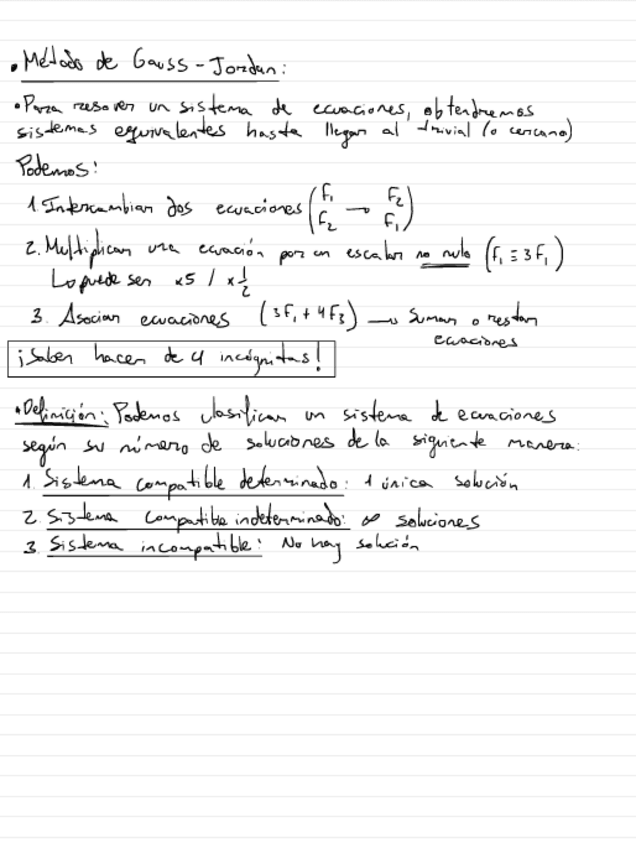 • Método de Gauss-Jordan:
• Para resolver un sistema de ecuaciones, obtendremos
sistemas equivalentes hasta llegar al trivial (o cercano)
Podemos:
1. Intercambiar dos ecuaciones (F₁ F₂ → F₂ F₁)
2. Multiplicar una ecuación por un escalar no nulo (F₁ ≡ 3F₁)
↳ puede ser x5 / x 1/2
3. Asociar ecuaciones (3F₁ + 4F₃) → Sumar o restar
ecuaciones
¡Saber hacer de 4 incógnitas!
• Definición: Podemos clasificar un sistema de ecuaciones
según su número de soluciones de la siguiente manera:
1. Sistema compatible determinado: 1 única solución
2. Sistema compatible indeterminado: ∞ soluciones
3. Sistema incompatible: No hay solución